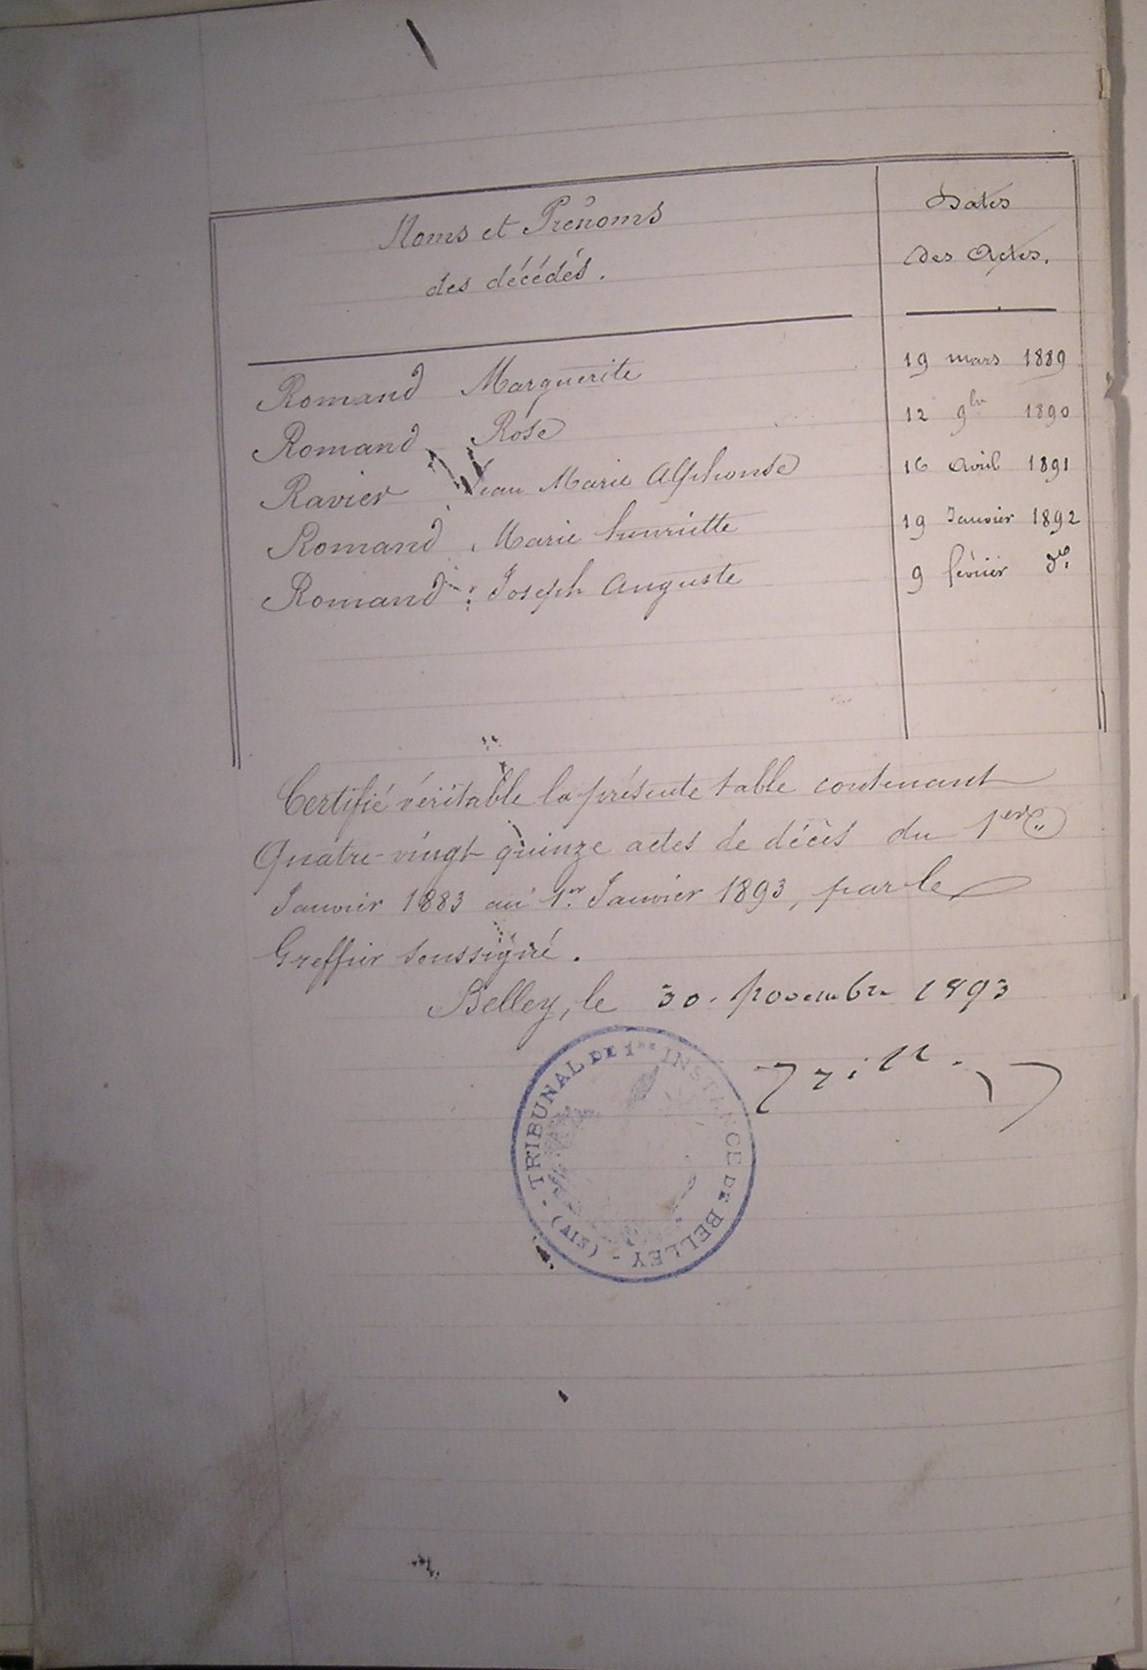 Noms et Prénoms
des décédés.
Dates
des Actes.
Romand Marguerite 19 mars 1889
Romand Rose 12 9bre 1890
Ravier Jean Marie Alphonse 16 Avril 1891
Romand Marie henriette 19 Janvier 1892
Romand Joseph Auguste 9 février do.
Certifié véritable la présente table contenant
Quatre-vingt quinze actes de décès du 1er
Janvier 1883 au 1er Janvier 1893, par le
Greffier soussigné.
Belley, le 30 Novembre 1893
TRIBUNAL DE 1RE INSTANCE DE BELLEY - (AIN) -